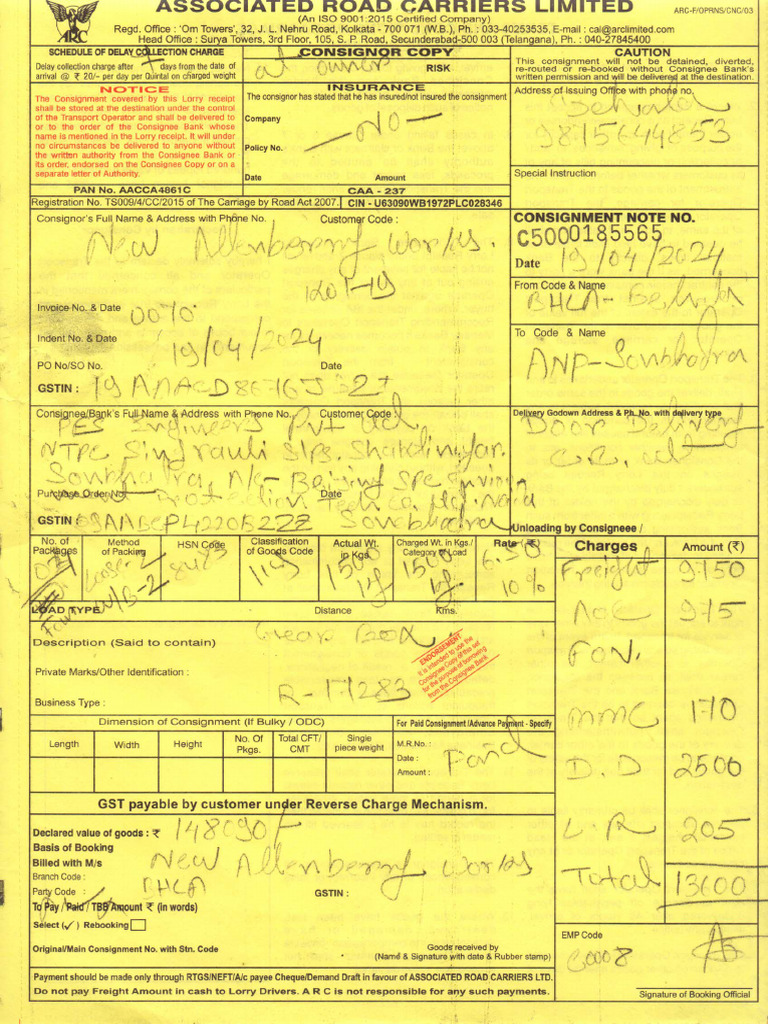 ASSOCIATED ROAD CARRIERS LIMITED
(An ISO 9001:2015 Certified Company)
ARC-F/OPRNS/CNC/03
Regd. Office : 'Om Towers', 32, J. L. Nehru Road, Kolkata - 700 071 (W.B.), Ph. : 033-40253535, E-mail : cal@arclimited.com
Head Office : Surya Towers, 3rd Floor, 105, S. P. Road, Secunderabad-500 003 (Telangana), Ph. : 040-27845400
ARC
SCHEDULE OF DELAY COLLECTION CHARGE
Delay collection charge after 7 days from the date of
arrival @ ₹ 20/- per day per Quintal on charged weight
CONSIGNOR COPY
at owner RISK
CAUTION
This consignment will not be detained, diverted,
re-routed or re-booked without Consignee Bank's
written permission and will be delivered at the destination.
NOTICE
The Consignment covered by this Lorry receipt
shall be stored at the destination under the control
of the Transport Operator and shall be delivered to
or to the order of the Consignee Bank whose
name is mentioned in the Lorry receipt. It will under
no circumstances be delivered to anyone without
the written authority from the Consignee Bank or
its order, endorsed on the Consignee Copy or on a
separate letter of Authority.
INSURANCE
The consignor has stated that he has insured/not insured the consignment
Company
- NO -
Policy No.
Date Amount
Address of Issuing Office with phone no.
Behala
9815644853
Special Instruction
PAN No. AACCA4861C
CAA - 237
Registration No. TS009/4/CC/2015 of The Carriage by Road Act 2007.
CIN - U63090WB1972PLC028346
Consignor's Full Name & Address with Phone No. Customer Code :
New Allenberry Works.
1201-19
Invoice No. & Date 0070
Indent No. & Date 19/04/2024
PO No/SO No. Date
GSTIN :
CONSIGNMENT NOTE NO.
C5000185565
Date 19/04/2024
From Code & Name
BHLA - Behala
To Code & Name
ANP - Sonbhadra
Consignee/Bank's Full Name & Address with Phone No. Customer Code :
PES Engineers Pvt Ltd
NTPC Singrauli Slps. Shaktinagar.
Sonbhadra, A/c - Beijing Spc
Purchase Order No. Protection Tech Co. Date
GSTIN 09AABCP4220B2ZZ Sonbhadra
Delivery Godown Address & Ph. No. with delivery type
Door Delivery
Unloading by Consigneee /
No. of Packages
Method of Packing Loose-2 W/B-2
HSN Code 8483
Classification of Goods Code 119
Actual Wt. in Kgs. 1500 kg
Charged Wt. in Kgs./ Category of Load 1500 kg.
Rate (₹) 6.50
10 %
Four
LOAD TYPE Distance Kms.
Description (Said to contain) Gear Box
ENDORSEMENT
It is intended to use the
Consignee Copy of this set
for the purpose of borrowing
from the Consignee Bank
Private Marks/Other Identification :
R-171283
Business Type :
Charges Amount (₹)
Freight 9750
AOC 975
FOV.
MMC 170
D.D 2500
L.R 205
Total 13600
Dimension of Consignment (If Bulky / ODC)
Length Width Height No. Of Pkgs. Total CFT/ CMT Single piece weight
For Paid Consignment /Advance Payment - Specify
M.R.No. :
Date :
Amount :
GST payable by customer under Reverse Charge Mechanism.
Declared value of goods : ₹ 148090/-
Basis of Booking
Billed with M/s New Allenberry Works
Branch Code : BHLA
Party Code : GSTIN :
To Pay / Paid / TBB Amount ₹ (in words)
Select (✓) Rebooking
Original/Main Consignment No. with Stn. Code
Goods received by
(Name & Signature with date & Rubber stamp)
EMP Code
C0008
Signature of Booking Official
Payment should be made only through RTGS/NEFT/A/c payee Cheque/Demand Draft in favour of ASSOCIATED ROAD CARRIERS LTD.
Do not pay Freight Amount in cash to Lorry Drivers. A R C is not responsible for any such payments.